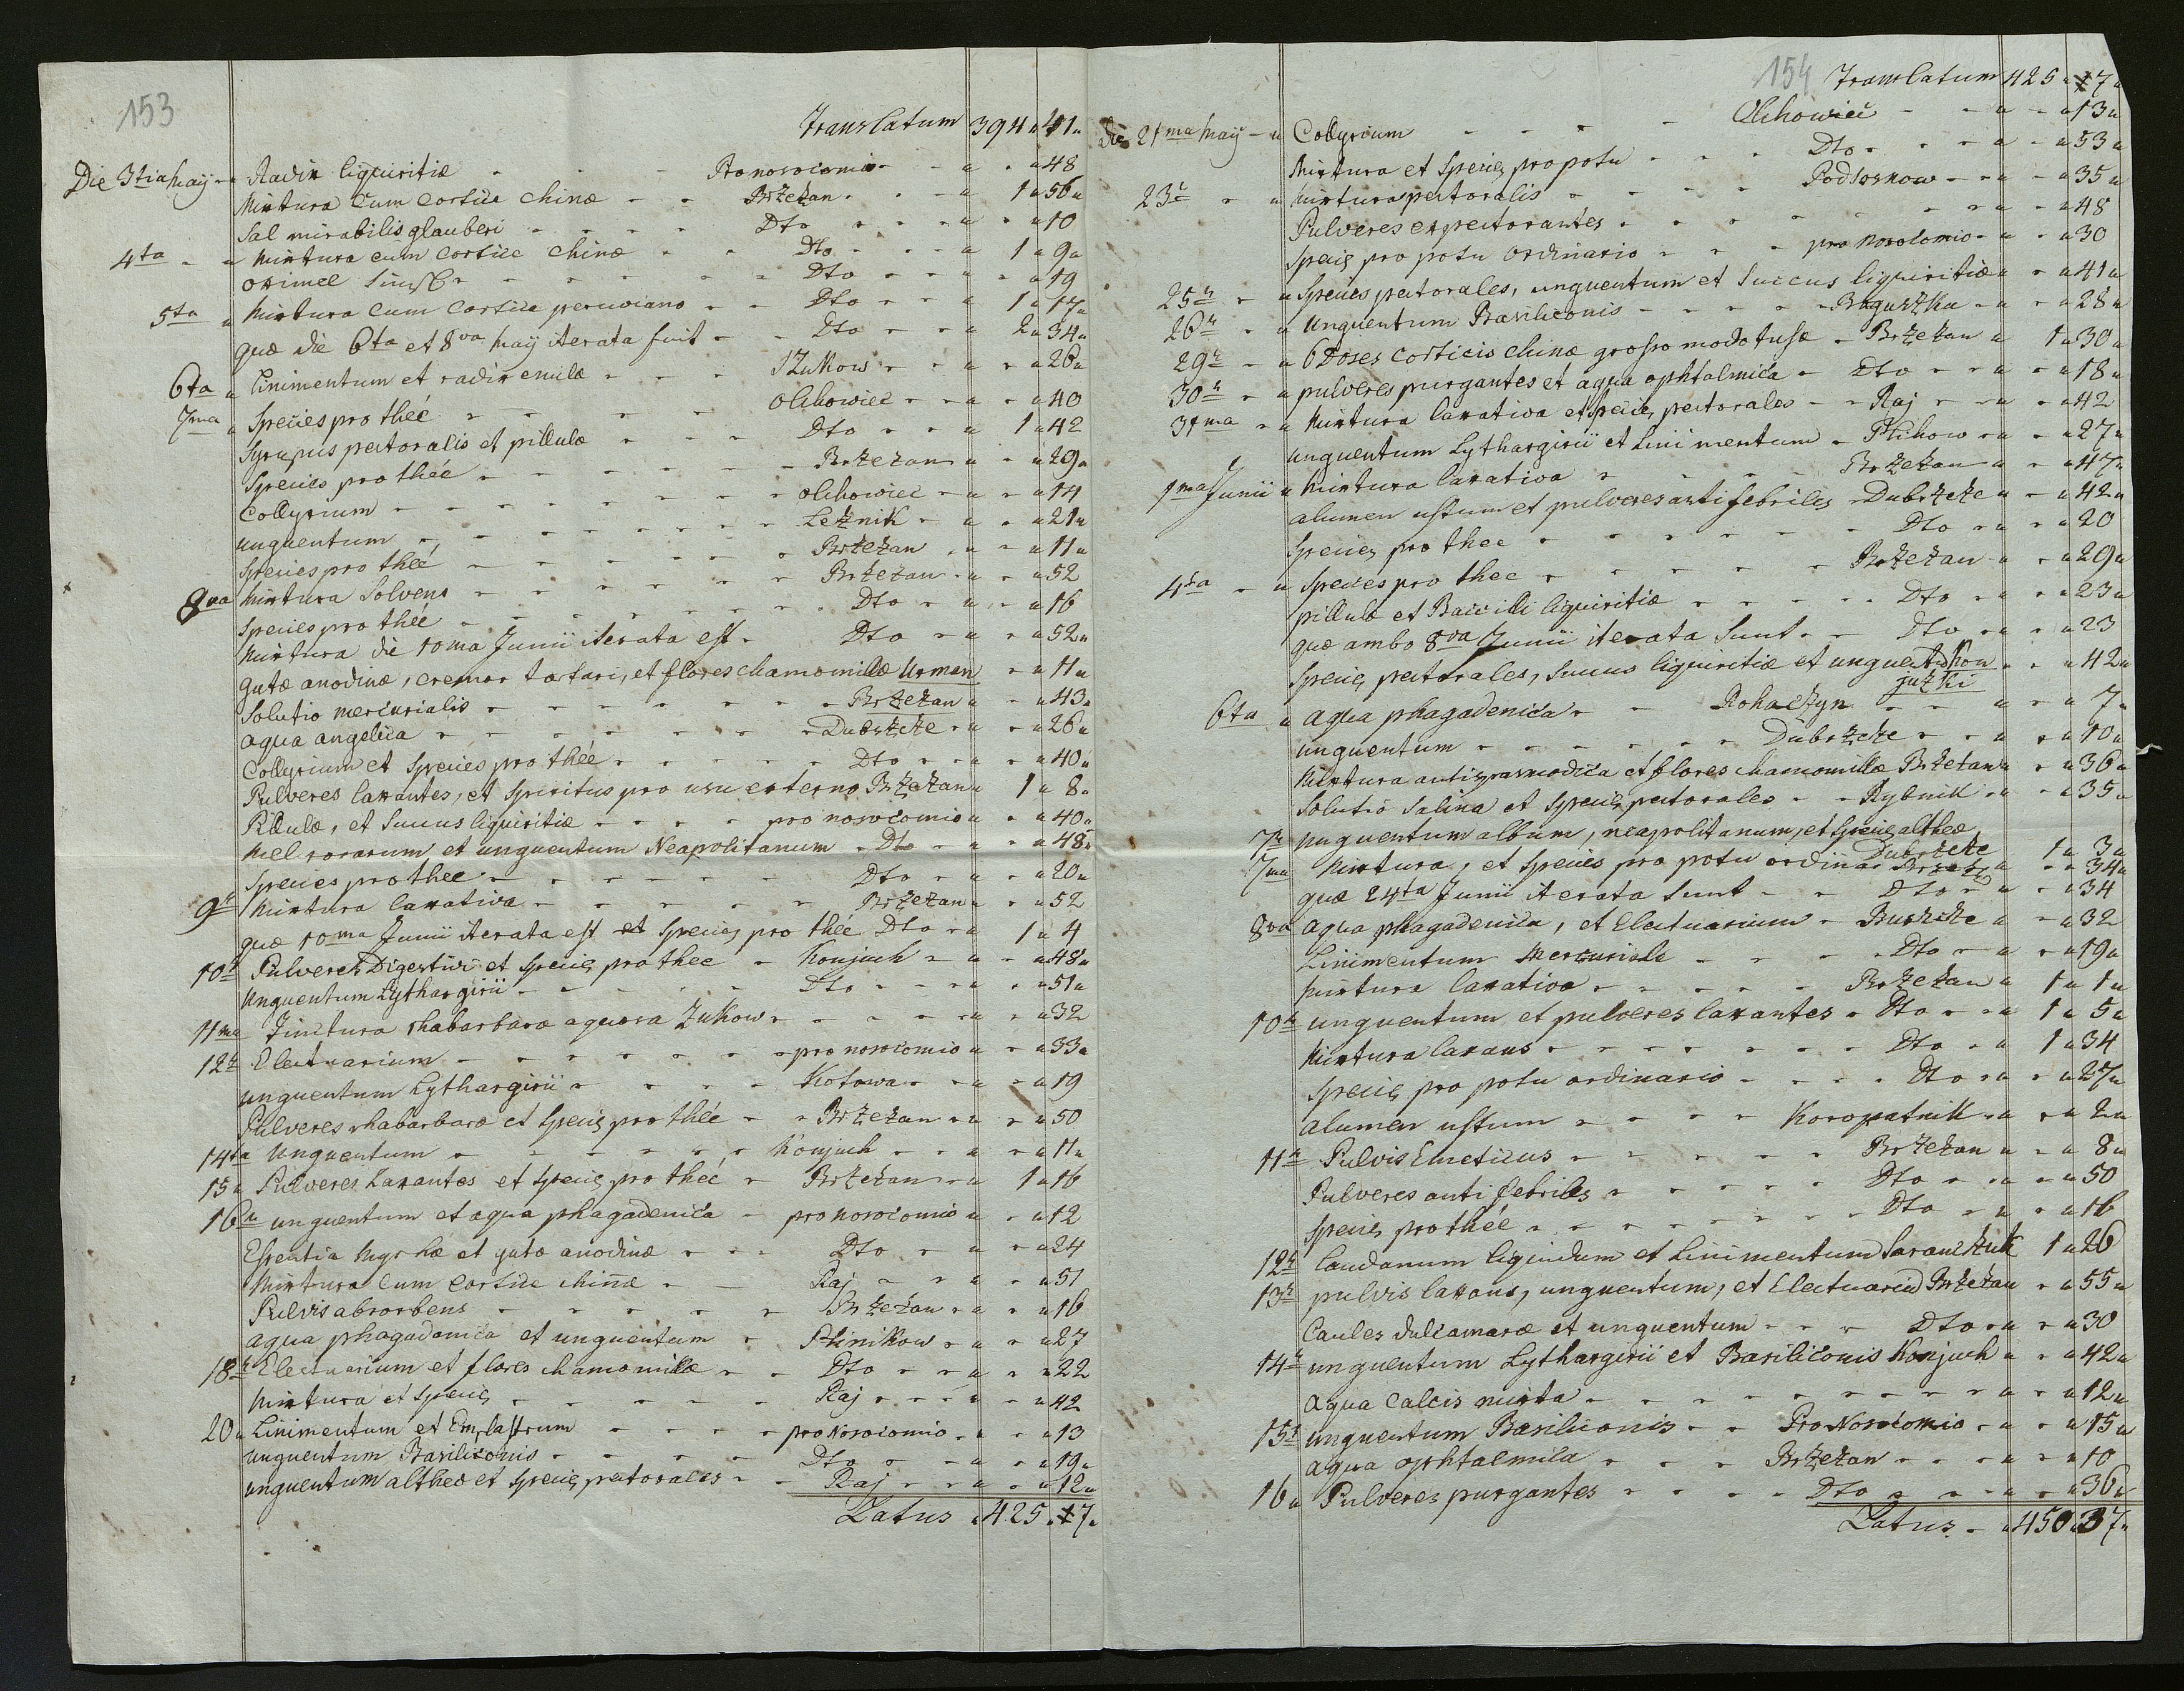 153
Translatum 394 " 41 "
Die 3tia Maÿ " Radix liquiritiæ - - - Pro nosocomio - - " - " 48
Mixtura cum cortice chinæ - - Brzeżan - - " 1 " 56 "
Sal mirabilis glauberi - - - - Dto - - - " - " 10
4ta - " Mixtura cum cortice chinæ - - Dto - - - " 1 " 9 "
oximel - - - - - - Dto - - - " - " 19
5ta " Mixtura cum cortice peruviano - - Dto - - - " 1 " 17 "
quæ die 6ta et 8va Maÿ iterata fuit - - Dto - - - " 2 " 34 "
6ta " Linimentum et radix enulæ - - - Zukow - - " - " 26 "
7ma " Species pro theé - - - - - olchowiec - - " - " 40
Syrupus pectoralis et pillulæ - - - Dto - - - " 1 " 42
Species pro theé - - - - - - Brzeżan " - " 29 "
Collyrium - - - - - - - olchowiec - " - " 14
unguentum - - - - - - - Leżnik - " - " 21 "
Species pro theé - - - - - - Brzeżan - " - " 11 "
8va Mixtura Solvens - - - - - - Brzeżan - " - " 52
Species pro theé - - - - - - Dto - - " - " 16
Mixtura die 10ma Junii iterata est - Dto - - " - " 52 "
gutæ anodinæ, cremor tartari, et flores chamomillæ Urman - " 11 "
Solutio mercurialis - - - - - - Brzeżan " - " 43 "
aqua angelica - - - - - - - Dubrzcże - " - " 26 "
Collyrium et Species pro theé - - - - Dto - - " - " 40 "
Pulveres laxantes, et Spiritus pro usu externo Brzeżan " 1 " 8 "
Pillulæ, et Succus liquiritiæ - - - - pro nosocomio " - " 40 "
Mel rosarum et unguentum Neapolitanum - Dto - - " - " 48 "
Species pro thee - - - - - - Dto - - " - " 20 "
9a Mixtura laxativa - - - - - - Brzeżan " - " 52
quæ 10ma Junii iterata est et Species pro theé Dto - " 1 " 4
10a Pulveres Digestivi et Species pro thee - Konjuch - " - " 48 "
Unguentum Lythargirii - - - - - Dto - - " - " 51 "
11ma Tinctura rhabarbaræ aquosa Zukow - - - - " - " 32
12a Electuarium - - - - - - pro nosocomio " - " 33 "
unguentum Lythargirii - - - - Kotowa - - " - " 19
Pulveres rhabarbaræ et Species pro theé - - Brzeżan - " - " 50
14ta Unguentum - - - - - - Konjuch - - - " - " 11 "
15a Pulveres Laxantes et Species pro theé - Brzeżan - " 1 " 16
16a unguentum et aqua phagadenica - pro nosocomio " - " 12
Essentia Myrhæ et gutæ anodinæ - - - Dto - - " - " 24
Mixtura cum Cortice chinæ - - Raj - - - " - " 51
Pulvis absorbens - - - - - - Brzeżan - " - " 16
aqua phagadenica et unguentum - Plinikow - " - " 27
18a Electuarium et flores chamomillæ - - Dto - - - " - " 22
Mixtura et Species - - - - - Raj - - - " - " 42
20a Linimentum et Emplastrum - - - - pro Nosocomio - " - " 13
unguentum Basiliconis - - - - Dto - - - " - " 19 "
unguentum altheæ et Species pectorales - - Raj - - - " - " 12 "
Latus " 425 " 17 "
154
Translatum 425 " 17 "
Die 21ma Maÿ - " Collyrium - - - - Olchowiec - - " - " 13 "
Mixtura et Species pro potu - - - Dto - - - " - " 53 "
23a - " Mixtura pectoralis - - - - - Podsosnow - - " - " 35 "
Pulveres expectorantes - - - - - - - - " - " 48
Species pro potu ordinario - - - pro nosocomio - " - " 30
25a - " Species pectorales, unguentum et Succus liquiritiæ " - " 41 "
26a - " Unguentum Basiliconis - - - - - - " - " 28 "
29a - " 6 Doses corticis chinæ grosso modo tusæ - Brzeżan " 1 " 30 "
30a - " pulveres purgantes et aqua ophtalmica - Dto - - " - " 18 "
31ma - " Mixtura laxativa et species pectorales - - Raj - - " - " 42
unguentum Lythargirii et Linimentum - Plihow - " - " 27 "
1ma Junii " Mixtura laxativa - - - - - Brzeżan " - " 47 "
alumen ustum et pulveres antifebriles - Dubrzcże " - " 42 "
Species pro thee - - - - - - Dto - " - " 20
4ta - " Species pro thee - - - - - - Brzeżan - " - " 29 "
pillulæ et Bacilli liquiritiæ - - - - - Dto - " - " 23 "
quæ ambo 8va Junii iterata Sunt - - Dto - " - " 23
Species pectorales, Succus liquiritiæ et - - " 42 "
6ta " aqua phagadenica - - Rohaczyn - - " - " 7 "
unguentum - - - - - - Dubrzcże - - " - " 10 "
Mixtura antispasmodica et flores chamomillæ Brzeżan " - " 36 "
Solutio Salina et Species pectorales - - Rybnik - " - " 35 "
7a Unguentum album, neapolitanum, et Species altheæ
Dubrzcże 1 " 3 "
7ma Mixtura, et Species pro potu ordinar - " - " 34 "
quæ 24ta Junii iterata Sunt - - Dto - " - " 34
8va aqua phagadenica, et Electuarium - " - " 32
Linimentum Mercuriale - - - - Dto - " - " 19 "
Mixtura laxativa - - - - - Brzeżan " 1 " 1 "
10a unguentum et pulveres laxantes - Dto - - " 1 " 5 "
Mixtura laxans - - - - - - - Dto - " 1 " 34
Species pro potu ordinario - - - - Dto - " - " 27 "
alumen ustum - - - - Koropatnik - " - " 2 "
11a Pulvis Emeticus - - - - - Brzeżan " - " 8 "
Pulveres antifebriles - - - - - Dto - " - " 50
Species pro theé - - - - - - - Dto - " - " 16
12a Laudanum liquidum et Linimentum Saranczuk 1 " 26
13a pulvis laxans, unguentum, et Electuariū Brzeżan - " 55 "
Caules dulcamaræ et unguentum - - - Dto - " - " 30
14a unguentum Lythargirii et Basiliconis Konjuch " - " 42 "
aqua calcis mixta - - - - - - - - - " - " 12 "
15a unguentum Basiliconis - - Pro Nosocomio - " - " 15 "
aqua ophtalmica - - - Brzeżan - - - " - " 10
16a Pulveres purgantes - - - - Dto - - - " - " 36 "
Latus - " 450 " 37 "